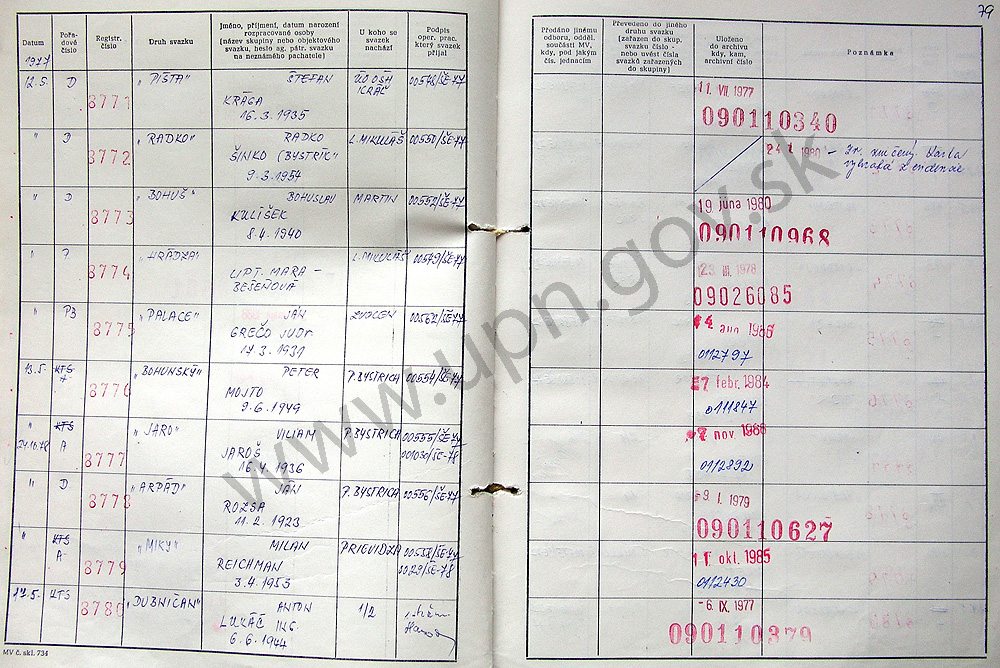 79
Datum
Pořadové číslo
Registr. číslo
Druh svazku
Jméno, příjmení, datum narození rozpracované osoby (název skupiny nebo objektového svazku, heslo ag. pátr. svazku na neznámého pachatele)
U koho se svazek nachází
Podpis oper. prac. který svazek přijal
Předáno jinému odboru, odděl. součásti MV, kdy, pod jakým čís. jednacím
Převedeno do jiného druhu svazku (zařazen do skup. svazku číslo - nebo uvést čísla svazků zařazených do skupiny)
Uloženo do archívu kdy, kam, archivní číslo
Poznámka
1977
12.5. D 8771 „PIŠTA" ŠTEFAN
KRÁGA
16.3.1935
KRÁČ
00548/ŠE-77
11. VII. 1977
090110340
" D 8772 „RADKO" RADKO
ŠINKO (BYSTRÍK"
9.3.1954
L. MIKULÁŠ
00551/ŠE-77
" D 8773 „BOHUŠ" BOHUSLAV
KULÍŠEK
8.4.1940
MARTIN
00552/ŠE-77
19. júna 1980
090110968
" 8774 „HRÁDZA"
LIPT. MARA -
BEŠEŇOVÁ
L. MIKULÁŠ
00549/ŠE-77
23. III. 1978
09026085
" 8775 „PALACE" JÁN
GREČO JUDr
17.3.1931
ZVOLEN
00562/ŠE-77
0112797
13.5. KTS 8776 „BOHUNSKÝ" PETER
MOJTO
9.6.1949
P. BYSTRICA
00554/ŠE-77
febr. 1984
0111847
" KTS
24.10.78 A 8777 „JARO" VILIAM
JAROŠ
16.4.1936
P. BYSTRICA
00555/ŠE-77
001030/ŠE-78
nov 1986
0112892
" D 8778 „ARPÁD" JÁN
ROZSA
11.2.1923
P. BYSTRICA
00556/ŠE-77
9. I. 1979
090110627
" KTS
A 8779 „MIKY" MILAN
REICHMAN
3.4.1953
PRIEVIDZA
0029/ŠE-78
11. okt. 1985
0112430
17.5. KTS 8780 „DUBNIČAN" ANTON
LUKÁČ ING.
6.6.1944
1/2
-6. IX. 1977
090110379
MV č. skl. 734
www.upn.gov.sk